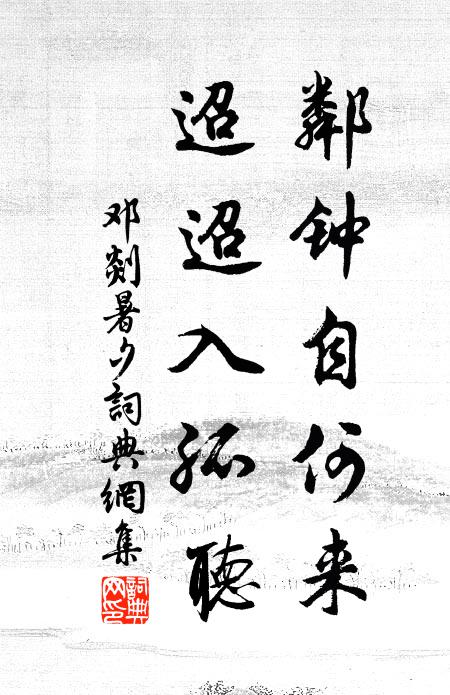 鄰钟自何来
迢迢入孤聽
邓剡暑夕詞典網集
詞典网印